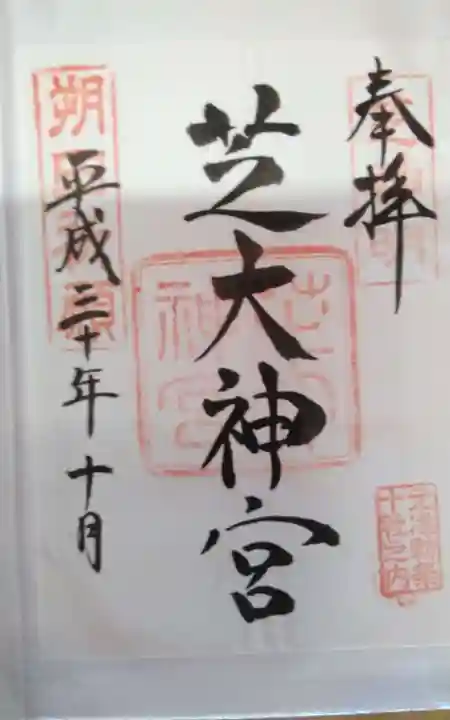 奉拝
芝大神宮
平成三十年十月
芝大
神宮
十社之内